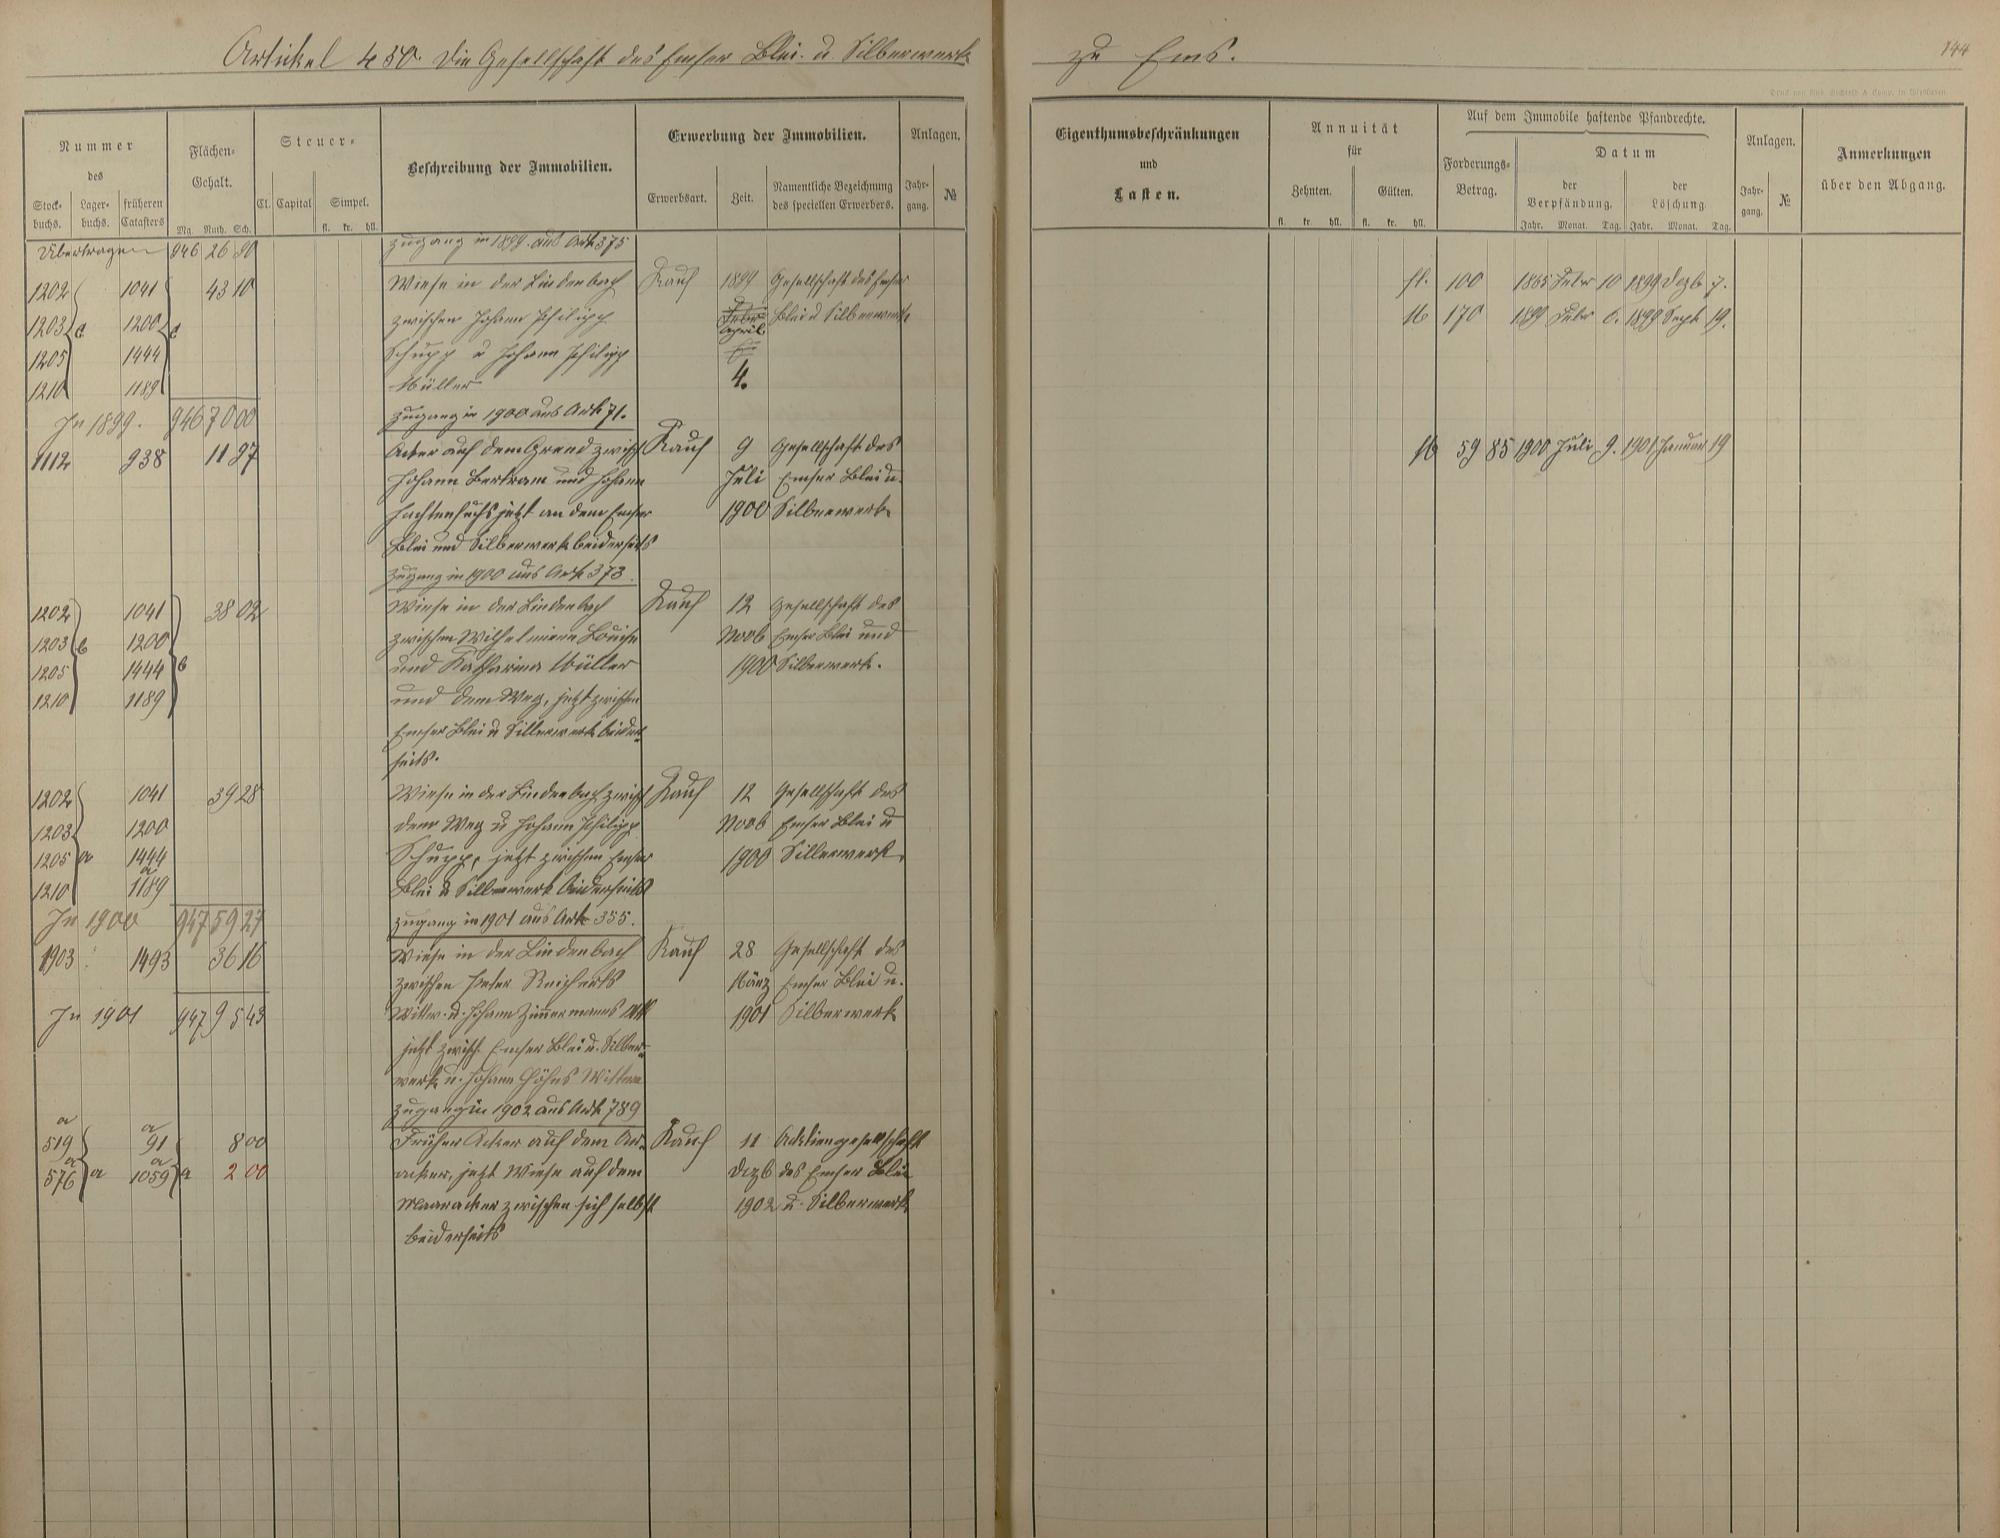 Artikel 450. Die Gesellschaft des Emser Blei- u. Silberwerk zu Ems.
144
Nummer des
Stock-buchs. Lager-buchs. früheren Catasters
Flächen-Gehalt.
Mg. Ruth. Sch.
Steuer-
Cl. Capital Simpel.
fl. kr. hll.
Beschreibung der Immobilien.
Erwerbung der Immobilien.
Erwerbsart. Zeit. Namentliche Bezeichnung des speciellen Erwerbers.
Anlagen.
Jahr-gang. №
Eigenthumsbeschränkungen
und
Lasten.
Annuität
für
Zehnten. Gülten.
fl. kr. hll. fl. kr. hll.
Auf dem Immobile haftende Pfandrechte.
Forderungs-Betrag.
Datum
der Verpfändung. der Löschung.
Jahr. Monat. Tag. Jahr. Monat. Tag.
Anlagen.
Jahr-gang. №
Anmerkungen
über den Abgang.
Übertragen 946 26 90
Zugang in 1899. aus Art. 375
1202 1041 43 10 Wiese in der Lindenbach Kauf 1899 Gesellschaft des Emser fl. 100 1865 Febr 10 1899 Dezb 7.
1203 c 1200 c zwischen Johann Philipp Febr April Blei u Silberwerk M 170 1899 Febr 6. 1899 Sept 19.
1205 1444 Schupp u Johann Philipp
1210 1189 Müller 4.
In 1899. 946 70 00 Zugang in 1900 aus Art. 71.
1112 938 11 97 Acker auf dem Grend zwisch Kauf 9 Gesellschaft des M 59 85 1900 Juli 9. 1901 Januar 19
Johann Bertram und Johann Juli Emser Blei u.
jetzt an dem Emser 1900 Silberwerk
Blei und Silberwerk beiderseits
Zugang in 1900 aus Art. 373.
1202 1041 38 02 Wiese in der Lindenbach Kauf 12 Gesellschaft des
1203 b 1200 zwischen Wilhelmine Louise Novb Emser Blei und
1205 1444 b und Katharina Müller 1900 Silberwerk.
1210 1189 und dem Weg, jetzt zwischen
Emser Blei u Silberwerk beider-
seits.
1202 1041 39 28 Wiese in der Lindenbach zwisch Kauf 12 Gesellschaft des
1203 1200 dem Weg u Johann Philipp Novb Emser Blei u
1205 a 1444 Schupp, jetzt zwischen Emser 1900 Silberwerk
1210 a 1189 Blei u Silberwerk beiderseits
In 1900 947 59 27 Zugang in 1901 aus Art. 355.
1903 1493 36 16 Wiese in der Lindenbach Kauf 28 Gesellschaft des
zwischen Peter Reicherts März Emser Blei u.
In 1901 947 95 43 Wittw. u. Johann Zimmermanns 1901 Silberwerk
jetzt zwisch. Emser Blei u. Silber-
werk u. Johann Höhns Wittwe
Zugang in 1902 aus Art. 789
a 519 a 91 8 00 Früher Acker auf dem Kauf 11 Actiengesellschaft
a 576 a a 1059 a 2 00 acker, jetzt Wiese auf dem Dezb des Emser Blei
Maaracker zwischen sich selbst 1902 u. Silberwerk
beiderseits